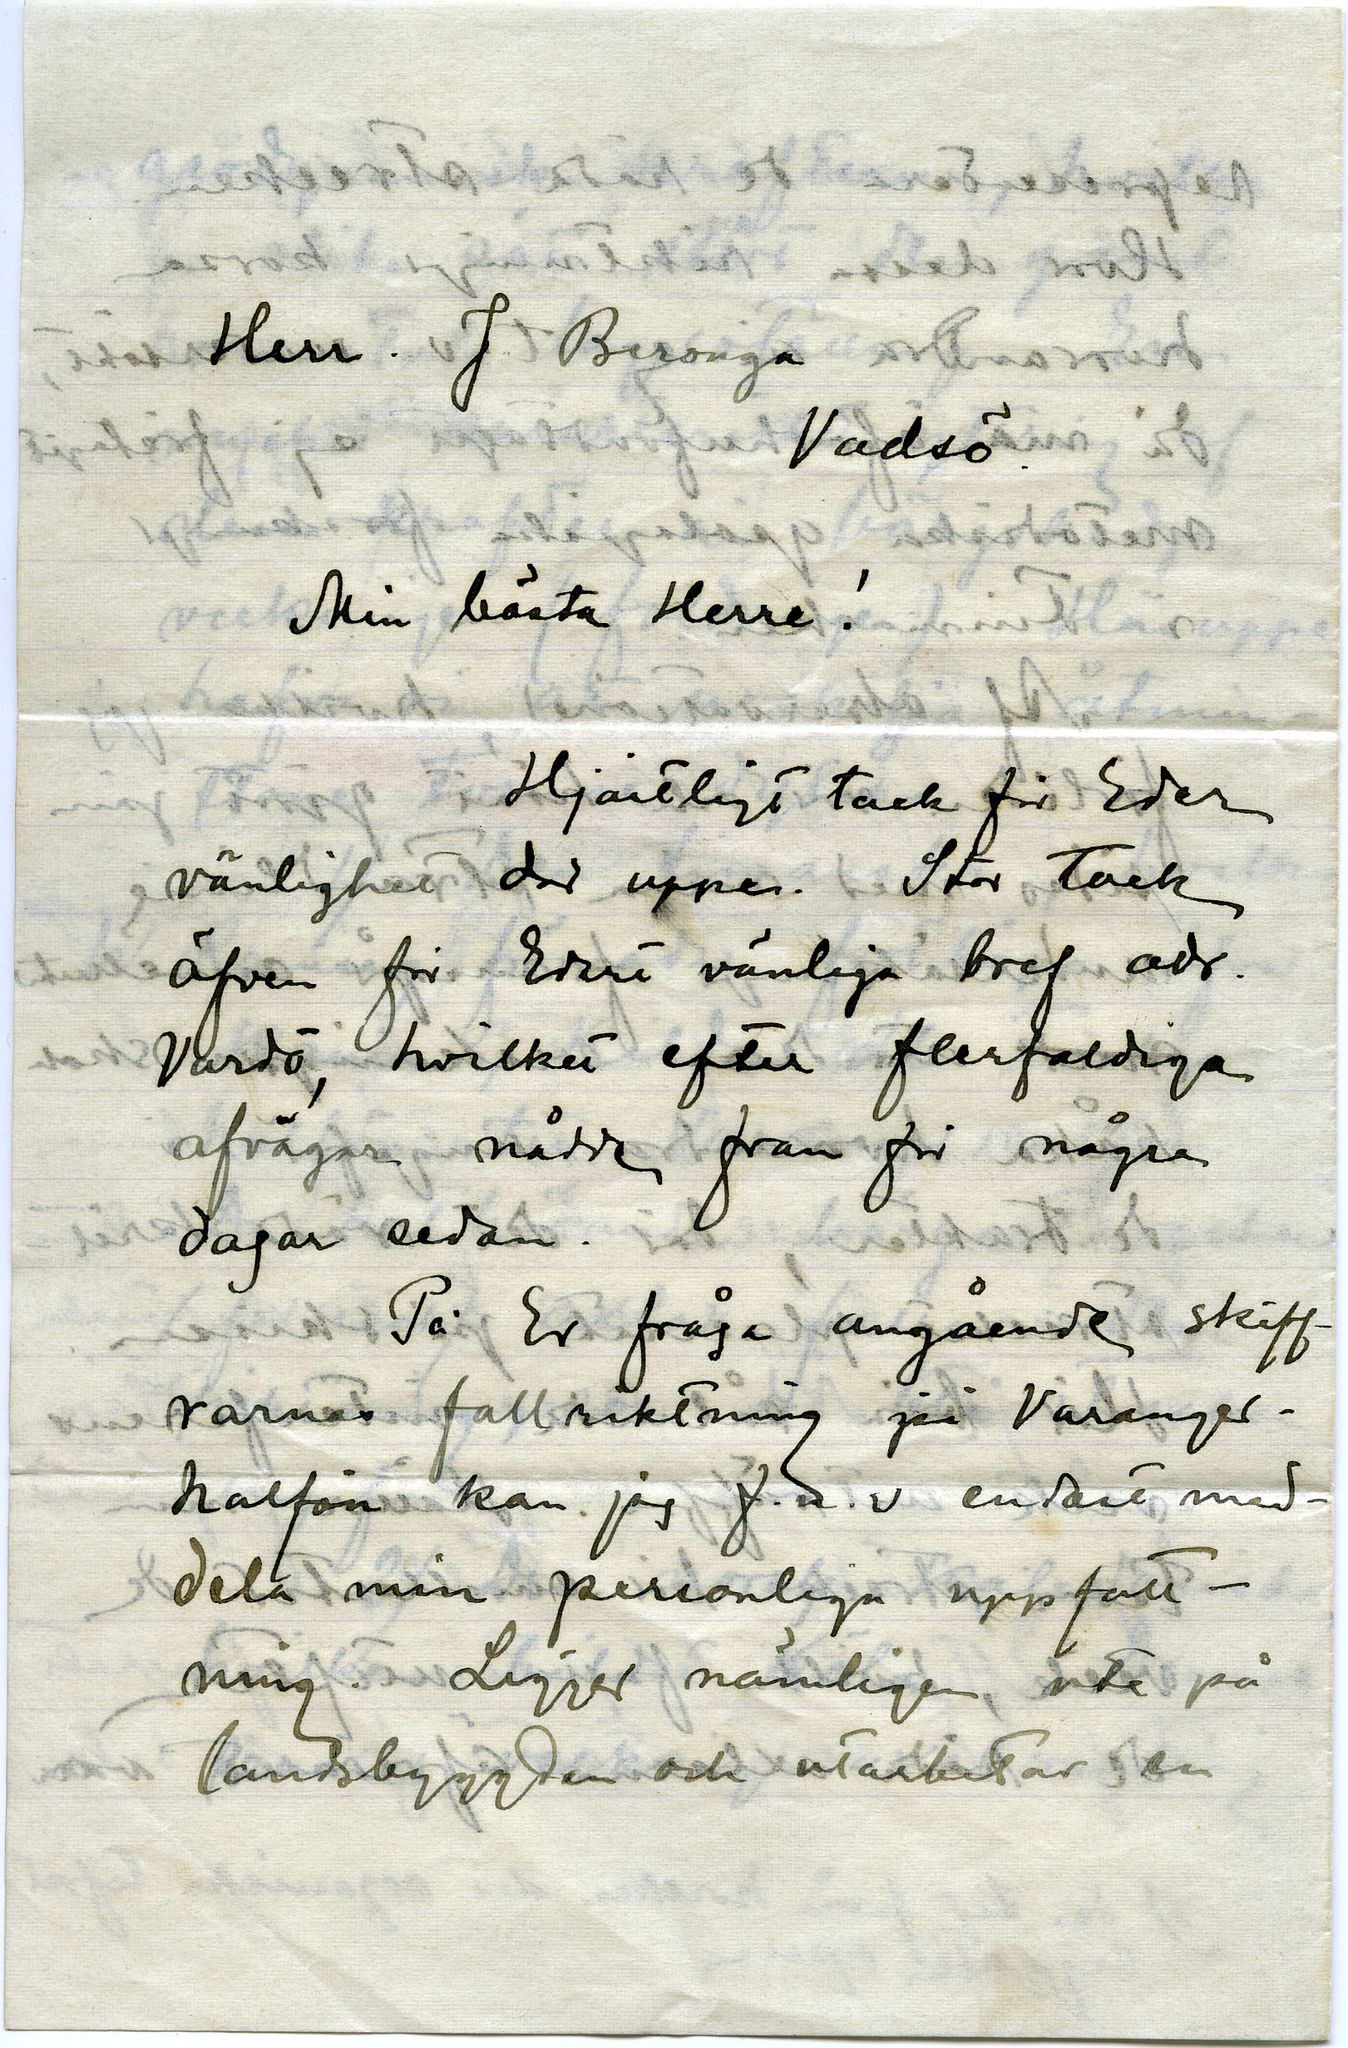 Herr. J Beronga
Vadsö.
Min bästa Herre!
Hjärtligt tack för Eder
vänlighet där uppe. Stor tack
äfven för Edert vänliga bref adr.
Vardö, hvilket efter flerfaldiga
afvägar nådde fram för några
dagar sedan.
På Er fråga angående skiff-
rarnas fallriktning på Varanger-
halfön kan jag f.n.v endast med-
dela min personliga uppfatt-
ning. Ligger nämligen ute på
landsbyggden och utarbetar en